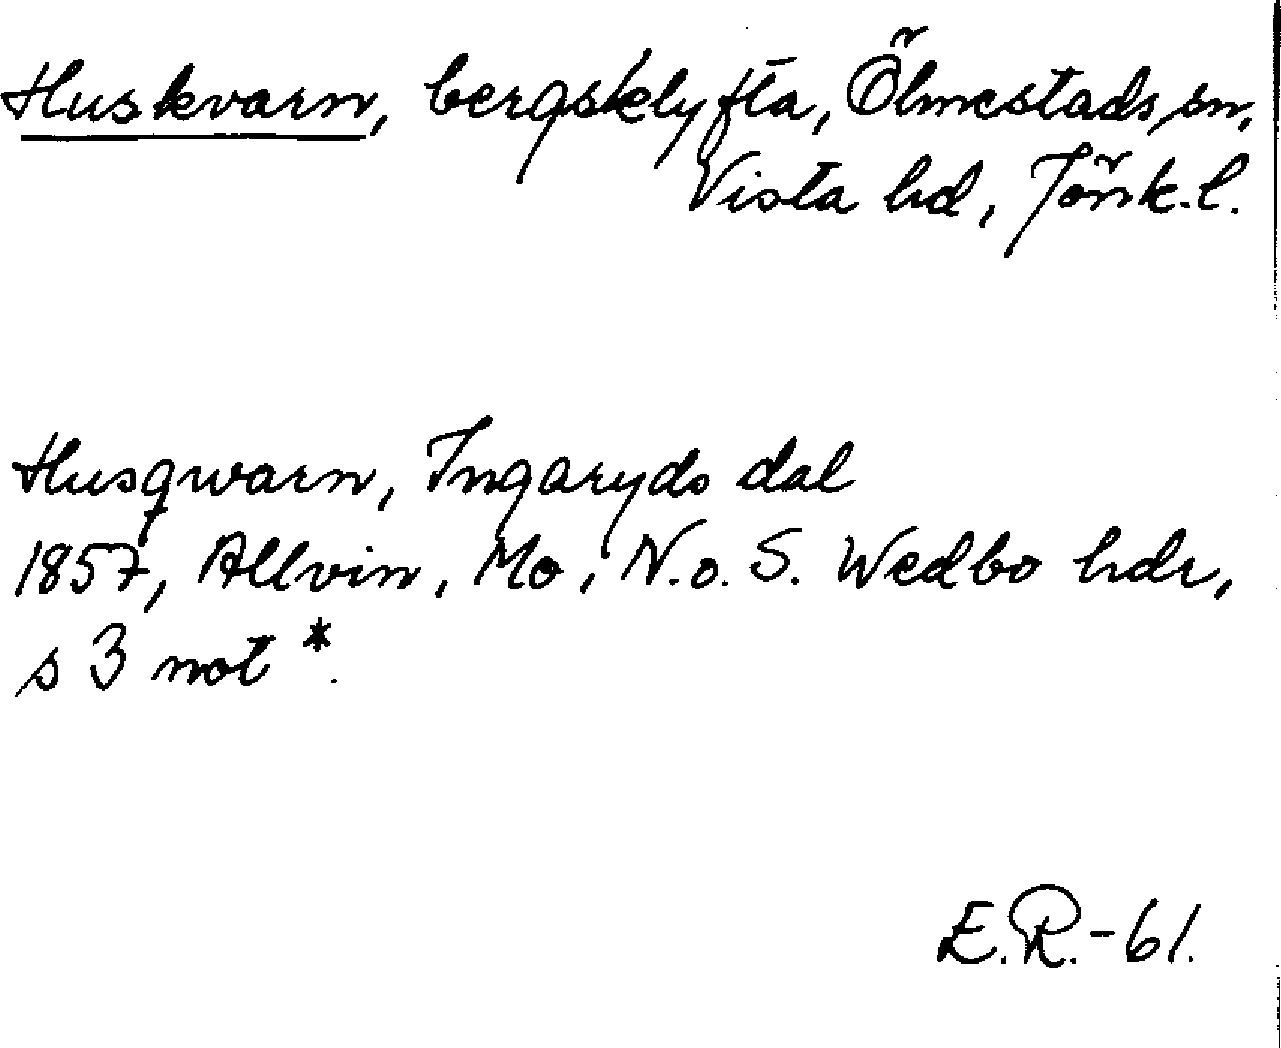 Huskvarn, bergsklyfta, Ölmestads sn,
Vista hd, Jönk. l.
Husqwarn, Ingaryds dal
1857, Allvin, Mo, N. o. S. Wedbo hdr,
s 3 not *.
E.R.-61.